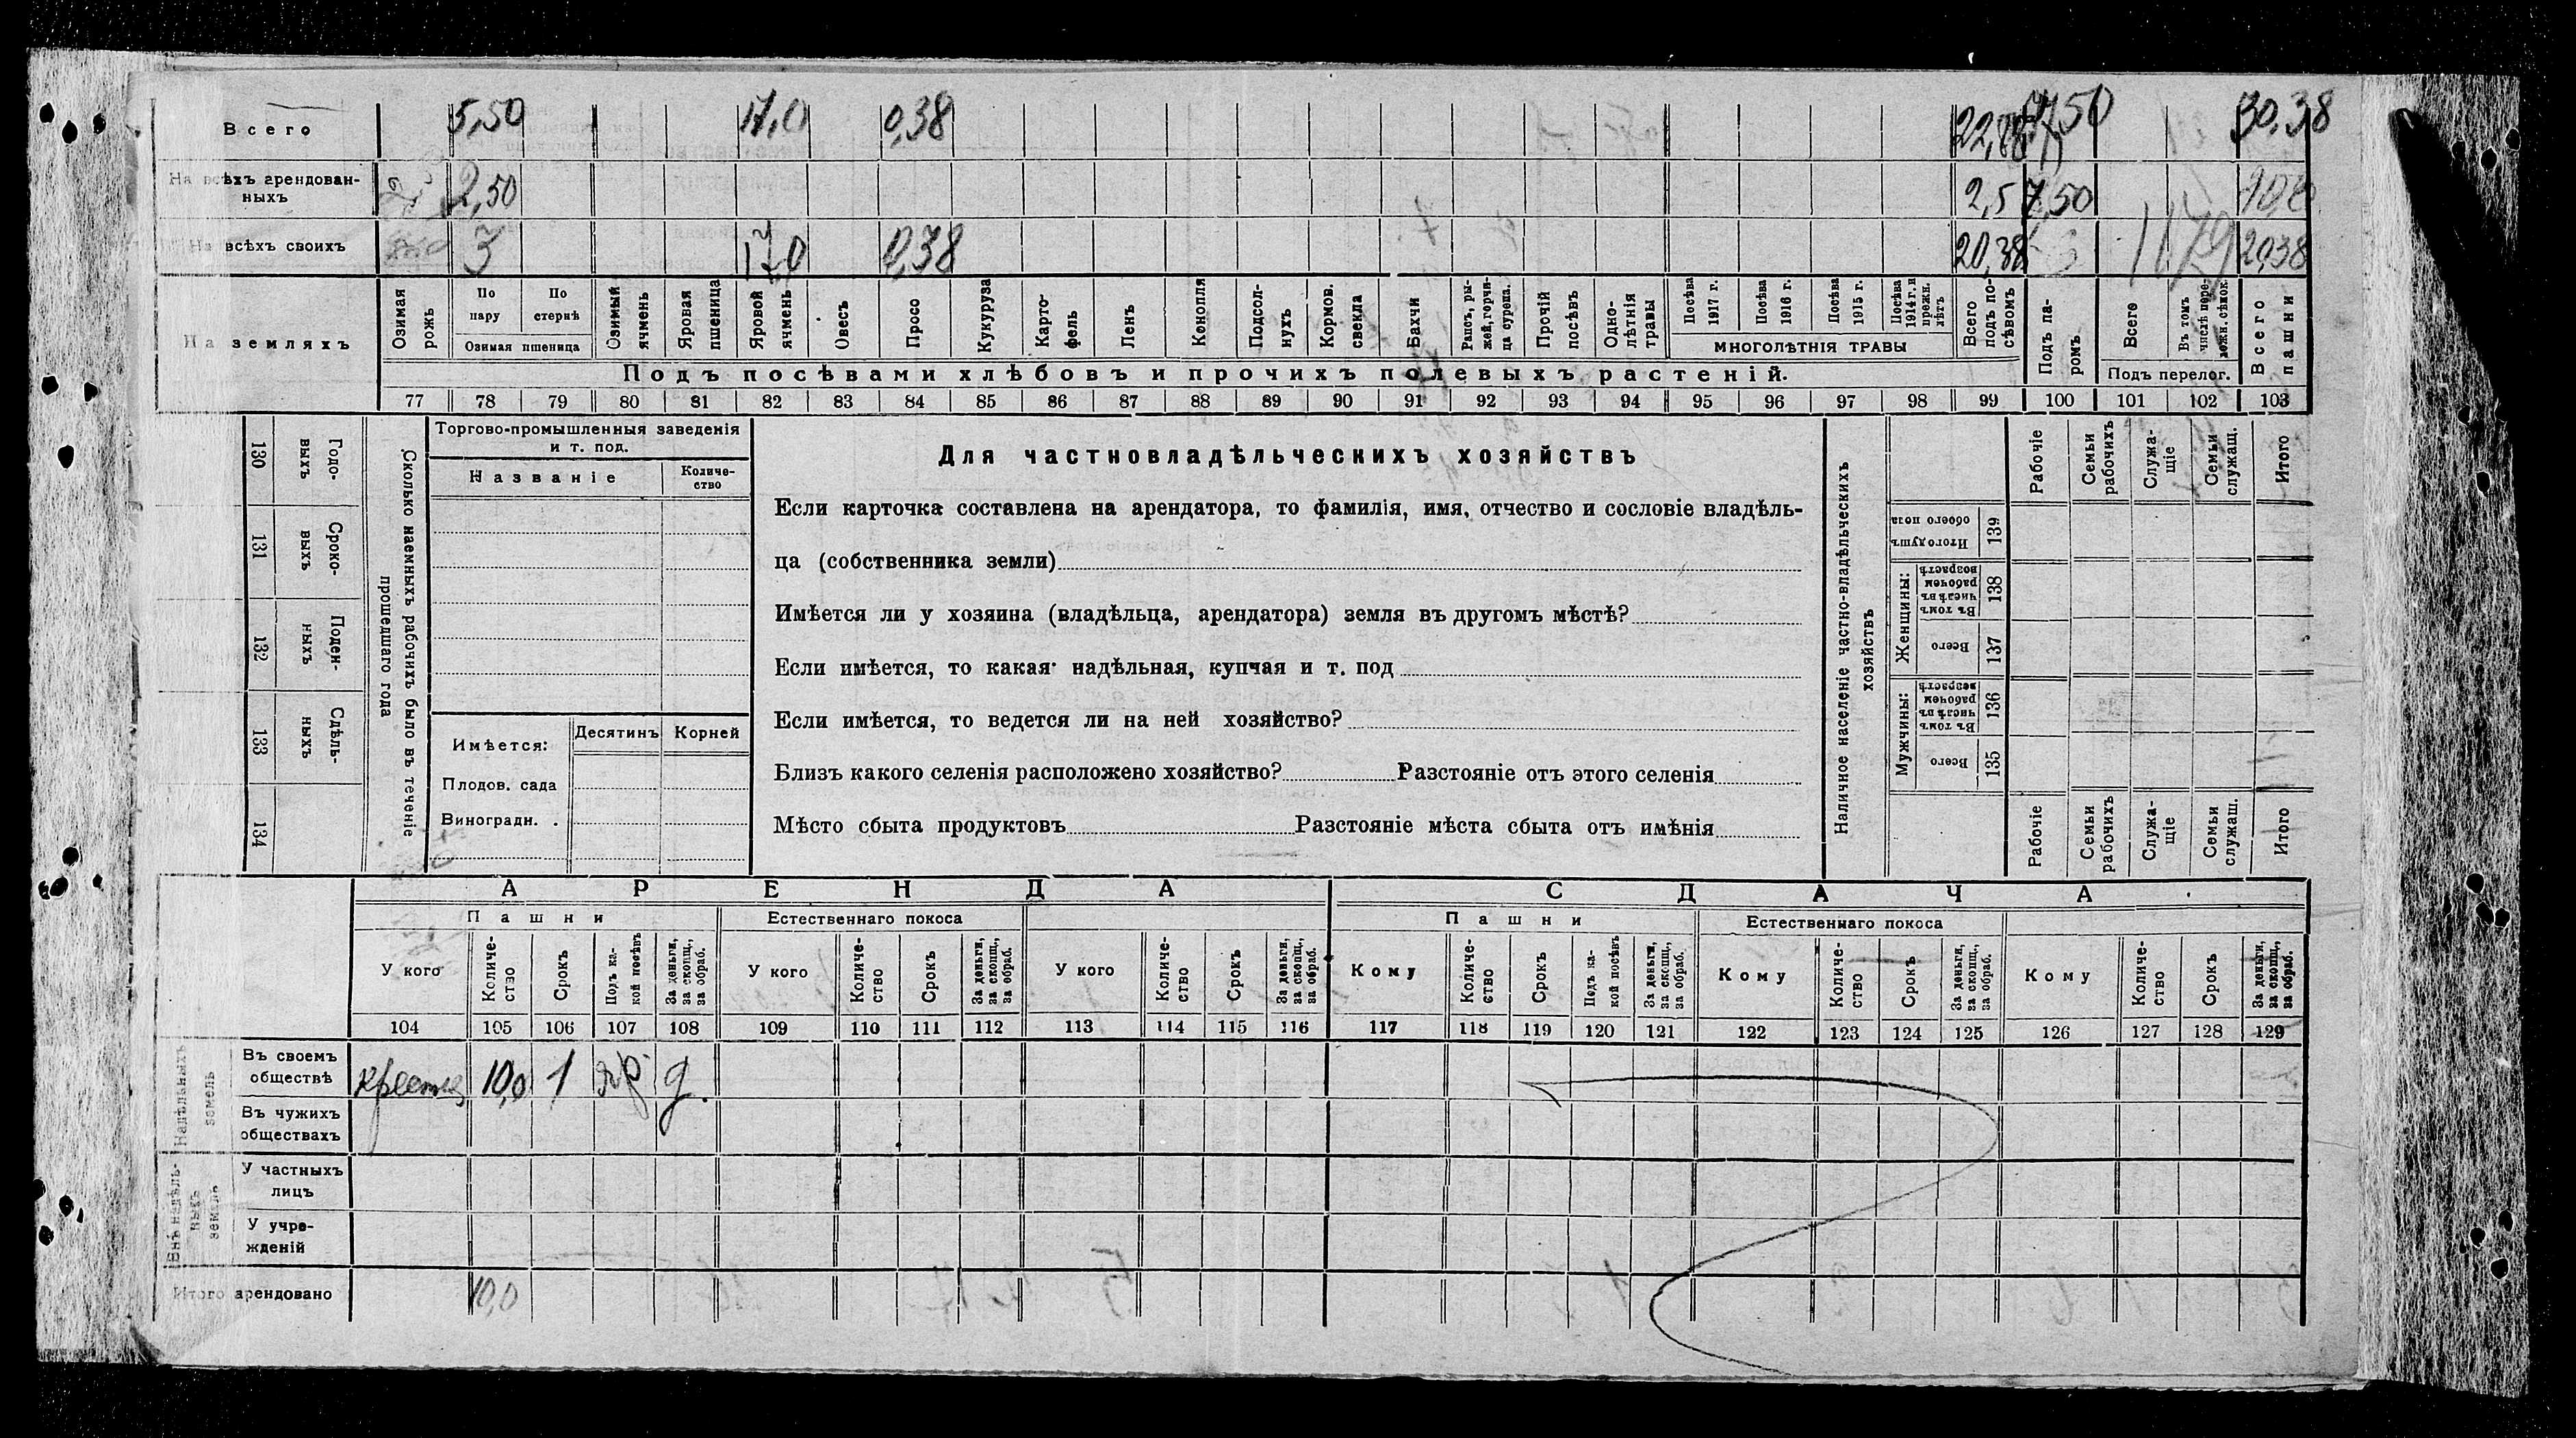 Всего 5,50 17,0 0,38 22,88 7,50 30,38
На всѣхъ арендованныхъ 2,50 2,5 7,50 10,0
На всѣхъ своихъ 3 17,0 0,38 20,38 1179 20,38
На земляхъ
Озимая рожь
По пару
По стернѣ
Озимая пшеница
Озимый ячмень
Яровая пшеница
Яровой ячмень
Овесъ
Просо
Кукуруза
Карто-фель
Ленъ
Кенопля
Подсол-нухъ
Кормов. свекла
Бахчи
Рапсъ, ры-жей, горчи-ца сурепа.
Прочій посѣвъ
Одно-лѣтнія травы
Посѣва 1917 г.
Посѣва 1916 г.
Посѣва 1915 г.
Посѣва 1914 г. и прежн. лѣтъ
МНОГОЛѢТНІЯ ТРАВЫ
Всего подъ по-сѣвомъ
Подъ па-ромъ
Всего
Въ томъ числѣ пере-ложн. сѣнок.
Подъ перелог.
Всего пашни
Подъ посѣвами хлѣбовъ и прочихъ полевыхъ растеній.
77 78 79 80 81 82 83 84 85 86 87 88 89 90 91 92 93 94 95 96 97 98 99 100 101 102 103
130 Годо-выхъ
131 Сроко-выхъ
132 Поден-ныхъ
133 Сдѣль-ныхъ
134
Сколько наемныхъ рабочихъ было въ теченіе
прошедшаго года
Торгово-промышленныя заведенія
и т. под.
Названіе
Количе-ство
Имѣется: Десятинъ Корней
Плодов. сада
Виноградн. .
Для частновладѣльческихъ хозяйствъ
Если карточка составлена на арендатора, то фамилія, имя, отчество и сословіе владѣль-
ца (собственника земли)
Имѣется ли у хозяина (владѣльца, арендатора) земля въ другомъ мѣстѣ?
Если имѣется, то какая надѣльная, купчая и т. под
Если имѣется, то ведется ли на ней хозяйство?
Близъ какого селенія расположено хозяйство? Разстояніе отъ этого селенія
Мѣсто сбыта продуктовъ Разстояніе мѣста сбыта отъ имѣнія
Наличное населеніе частно-владѣльческихъ
хозяйствъ
Рабочіе
Семьи рабочихъ
Служа-щіе
Семьи служащ.
Итого
Итого душъ обоего пола 139
Женщины:
Въ томъ числѣ въ рабочемъ возрастѣ 138
Всего 137
Мужчины:
Въ томъ числѣ въ рабочем возрастѣ 136
Всего 135
Рабочіе
Семьи рабочихъ
Служа-щіе
Семьи служащ.
Итого
АРЕНДА СДАЧА
Пашни Естественнаго покоса Пашни Естественнаго покоса
У кого
Количе-ство
Срокъ
Подъ ка-кой посѣвъ
За деньги, за скопщ., за обраб.
У кого
Количе-ство
Срокъ
За деньги, за скопщ., за обраб.
У кого
Количе-ство
Срокъ
За деньги, за скопщ., за обраб.
Кому
Количе-ство
Срокъ
Подъ ка-кой посѣвъ
За деньги, за скопщ., за обраб.
Кому
Количе-ство
Срокъ
За деньги, за скопщ., за обраб.
Кому
Количе-ство
Срокъ
За деньги, за скопщ., за обраб.
104 105 106 107 108 109 110 111 112 113 114 115 116 117 118 119 120 121 122 123 124 125 126 127 128 129
Надѣльныхъ земель
Въ своемъ обществѣ 10,0 1 яр д.
Въ чужихъ обществахъ
Внѣ надѣль-ныхъ земель
У частныхъ лицъ
У учре-жденій
Итого арендовано 10,0